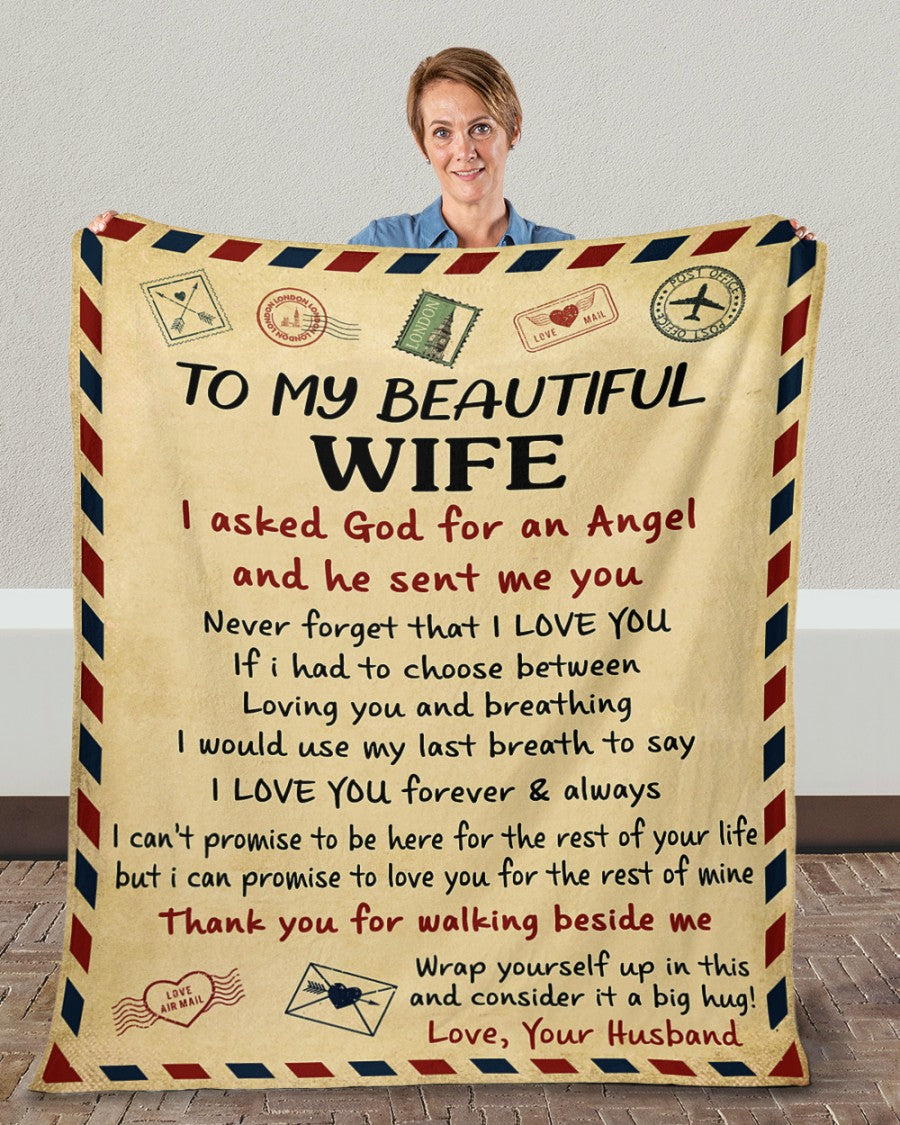 LONDON LONDON LONDON LONDON
LONDON
LOVE MAIL
POST OFFICE
POST OFFICE
TO MY BEAUTIFUL
WIFE
I asked God for an Angel
and he sent me you
Never forget that I LOVE YOU
If i had to choose between
Loving you and breathing
I would use my last breath to say
I LOVE YOU forever & always
I can't promise to be here for the rest of your life
but i can promise to love you for the rest of mine
Thank you for walking beside me
LOVE
AIR MAIL
Wrap yourself up in this
and consider it a big hug!
Love, Your Husband